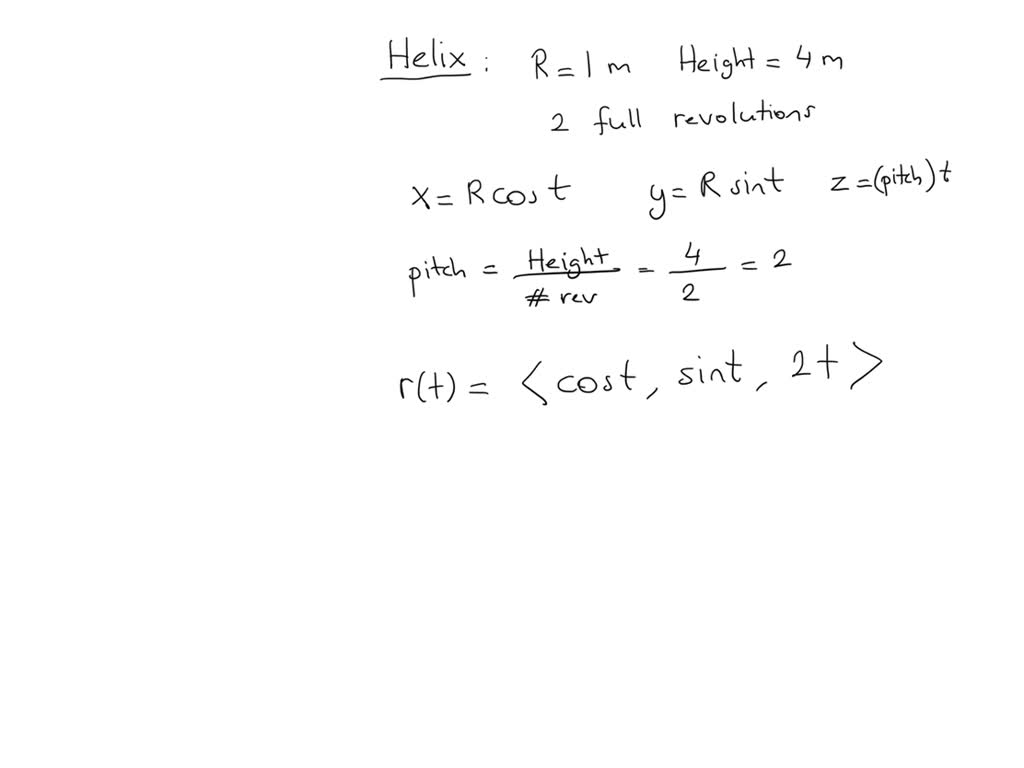 Helix : R = 1 m Height = 4 m
2 full revolutions
x = R cos t y = R sin t z = (pitch) t
pitch = Height / # rev = 4 / 2 = 2
r(t) = < cost, sint, 2t >